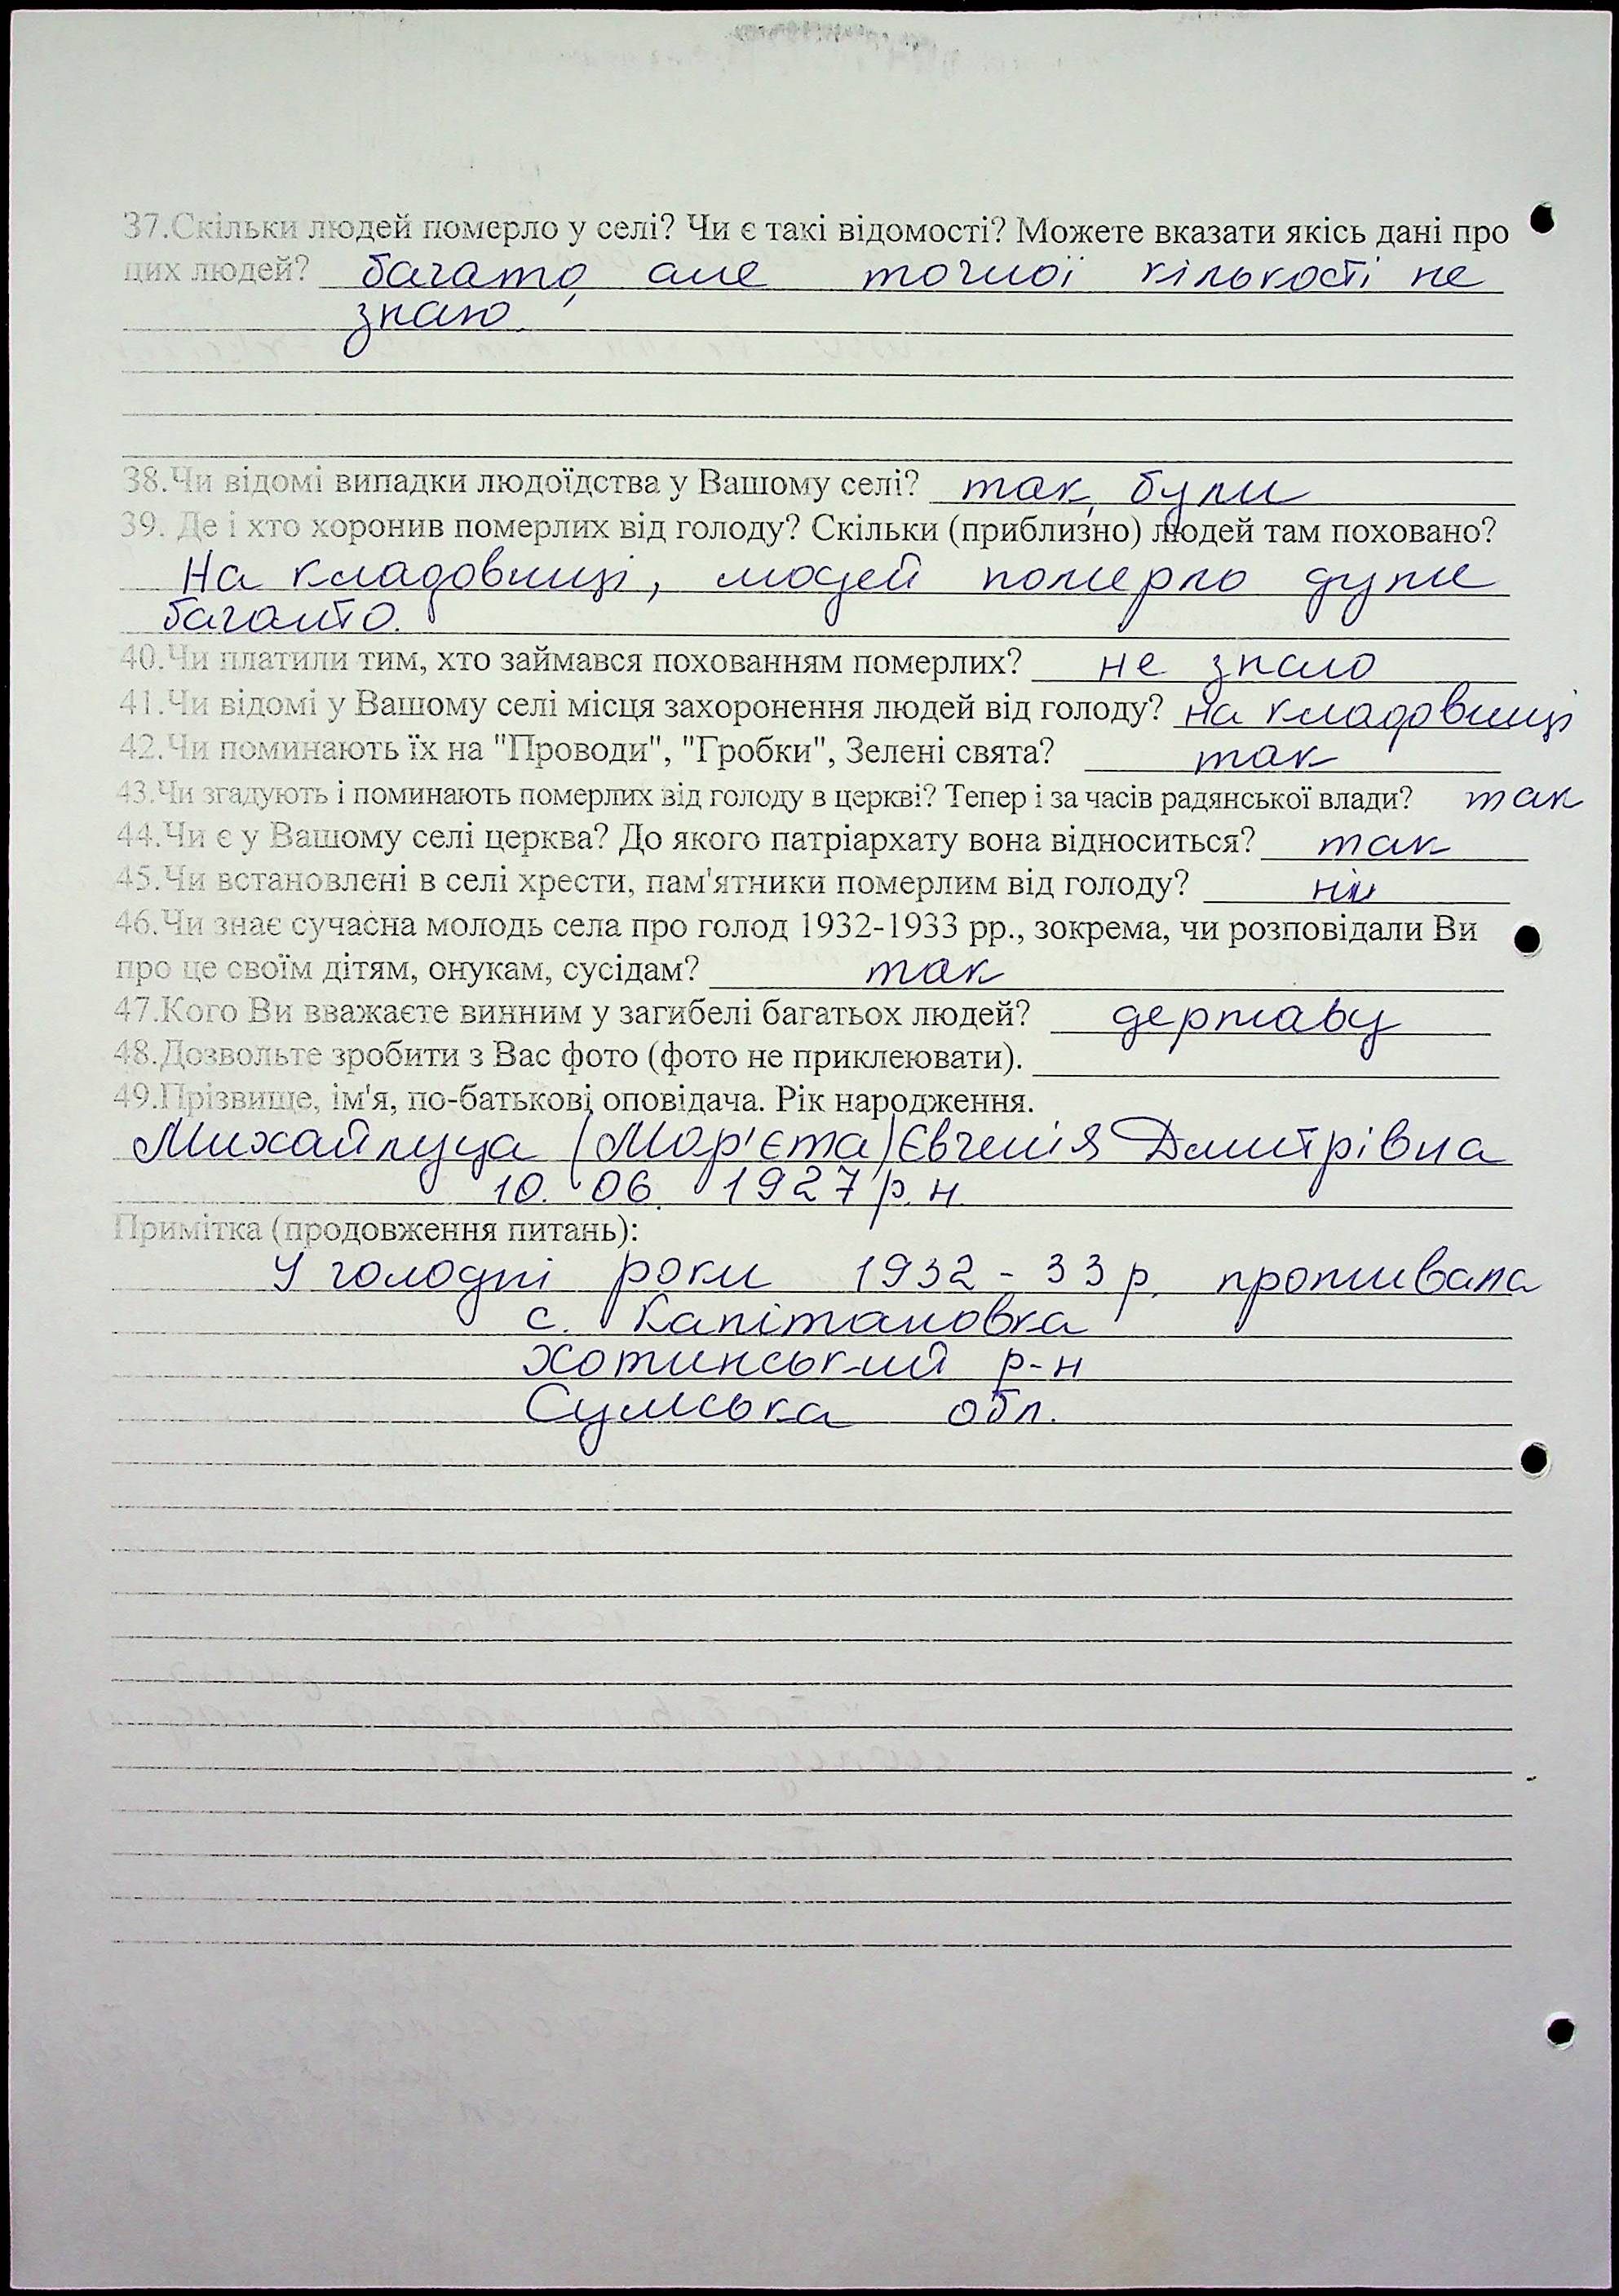 37.Скільки людей померло у селі? Чи є такі відомості? Можете вказати якісь дані про
цих людей? багато, але точної кількості не
знаю.
38.Чи відомі випадки людоїдства у Вашому селі? так, були
39. Де і хто хоронив померлих від голоду? Скільки (приблизно) людей там поховано?
На кладовищі, людей померло дуже
багато.
40.Чи платили тим, хто займався похованням померлих? не знаю
41.Чи відомі у Вашому селі місця захоронення людей від голоду? на кладовищі
42.Чи поминають їх на "Проводи", "Гробки", Зелені свята? так
43.Чи згадують і поминають померлих від голоду в церкві? Тепер і за часів радянської влади? так
44.Чи є у Вашому селі церква? До якого патріархату вона відноситься? так
45.Чи встановлені в селі хрести, пам'ятники померлим від голоду? ні
46.Чи знає сучасна молодь села про голод 1932-1933 рр., зокрема, чи розповідали Ви
про це своїм дітям, онукам, сусідам? так
47.Кого Ви вважаєте винним у загибелі багатьох людей? державу
48.Дозвольте зробити з Вас фото (фото не приклеювати).
49.Прізвище, ім'я, по-батькові оповідача. Рік народження.
Михайлуца (Мар'єта) Євгенія Дмитрівна
10. 06. 1927 р.н.
Примітка (продовження питань):
У голодні роки 1932 - 33 р. проживала
с. Капітановка
Хотинський р-н
Сумська обл.